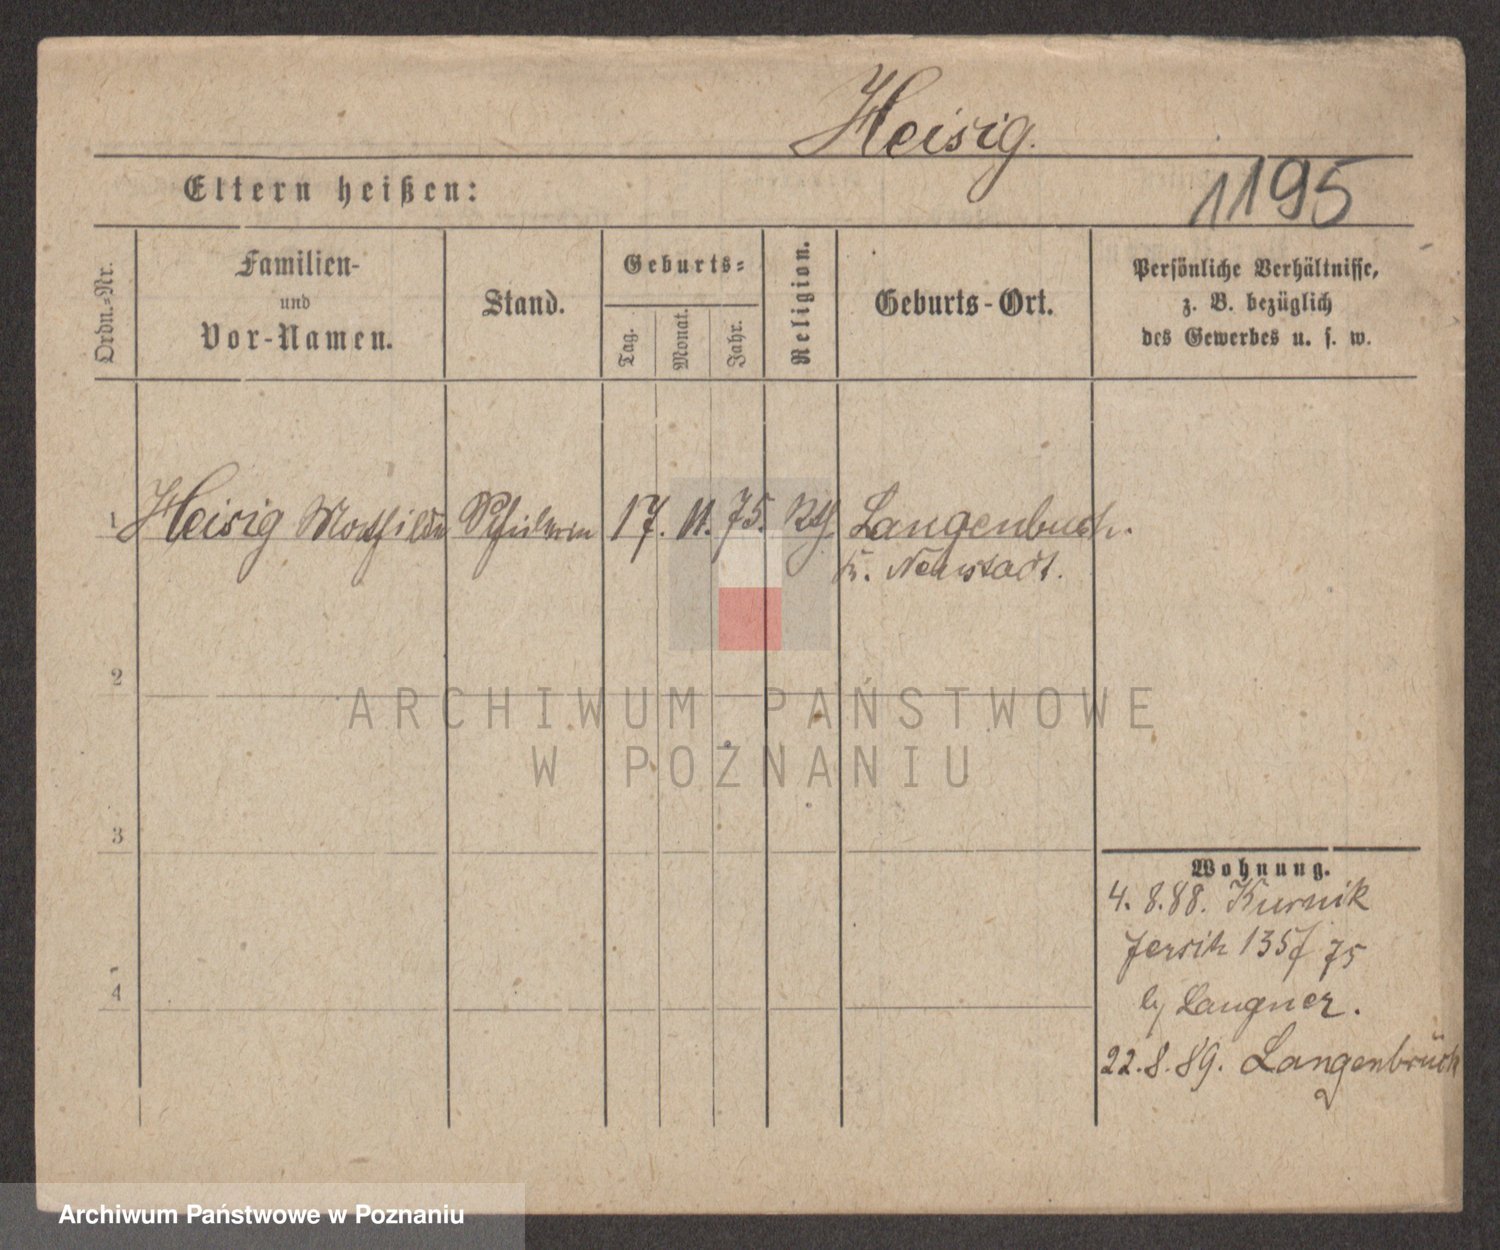 Heisig.
Eltern heißen:
1195
Ordn.=Nr.
Familien-
und
Vor-Namen.
Stand.
Geburts=
Tag.
Monat.
Jahr.
Religion.
Geburts-Ort.
Persönliche Verhältnisse,
z. B. bezüglich
des Gewerbes u. s. w.
1 Heisig Mathilde Schülerin 17. 11. 75. Kth. Langenbrück.
K. Neustadt.
2
ARCHIWUM PAŃSTWOWE
W POZNANIU
3
Wohnung.
4. 8. 88. Kurnik
Jersitz 135f 75
by Langner.
4
22. 8. 89. Langenbrück
Archiwum Państwowe w Poznaniu